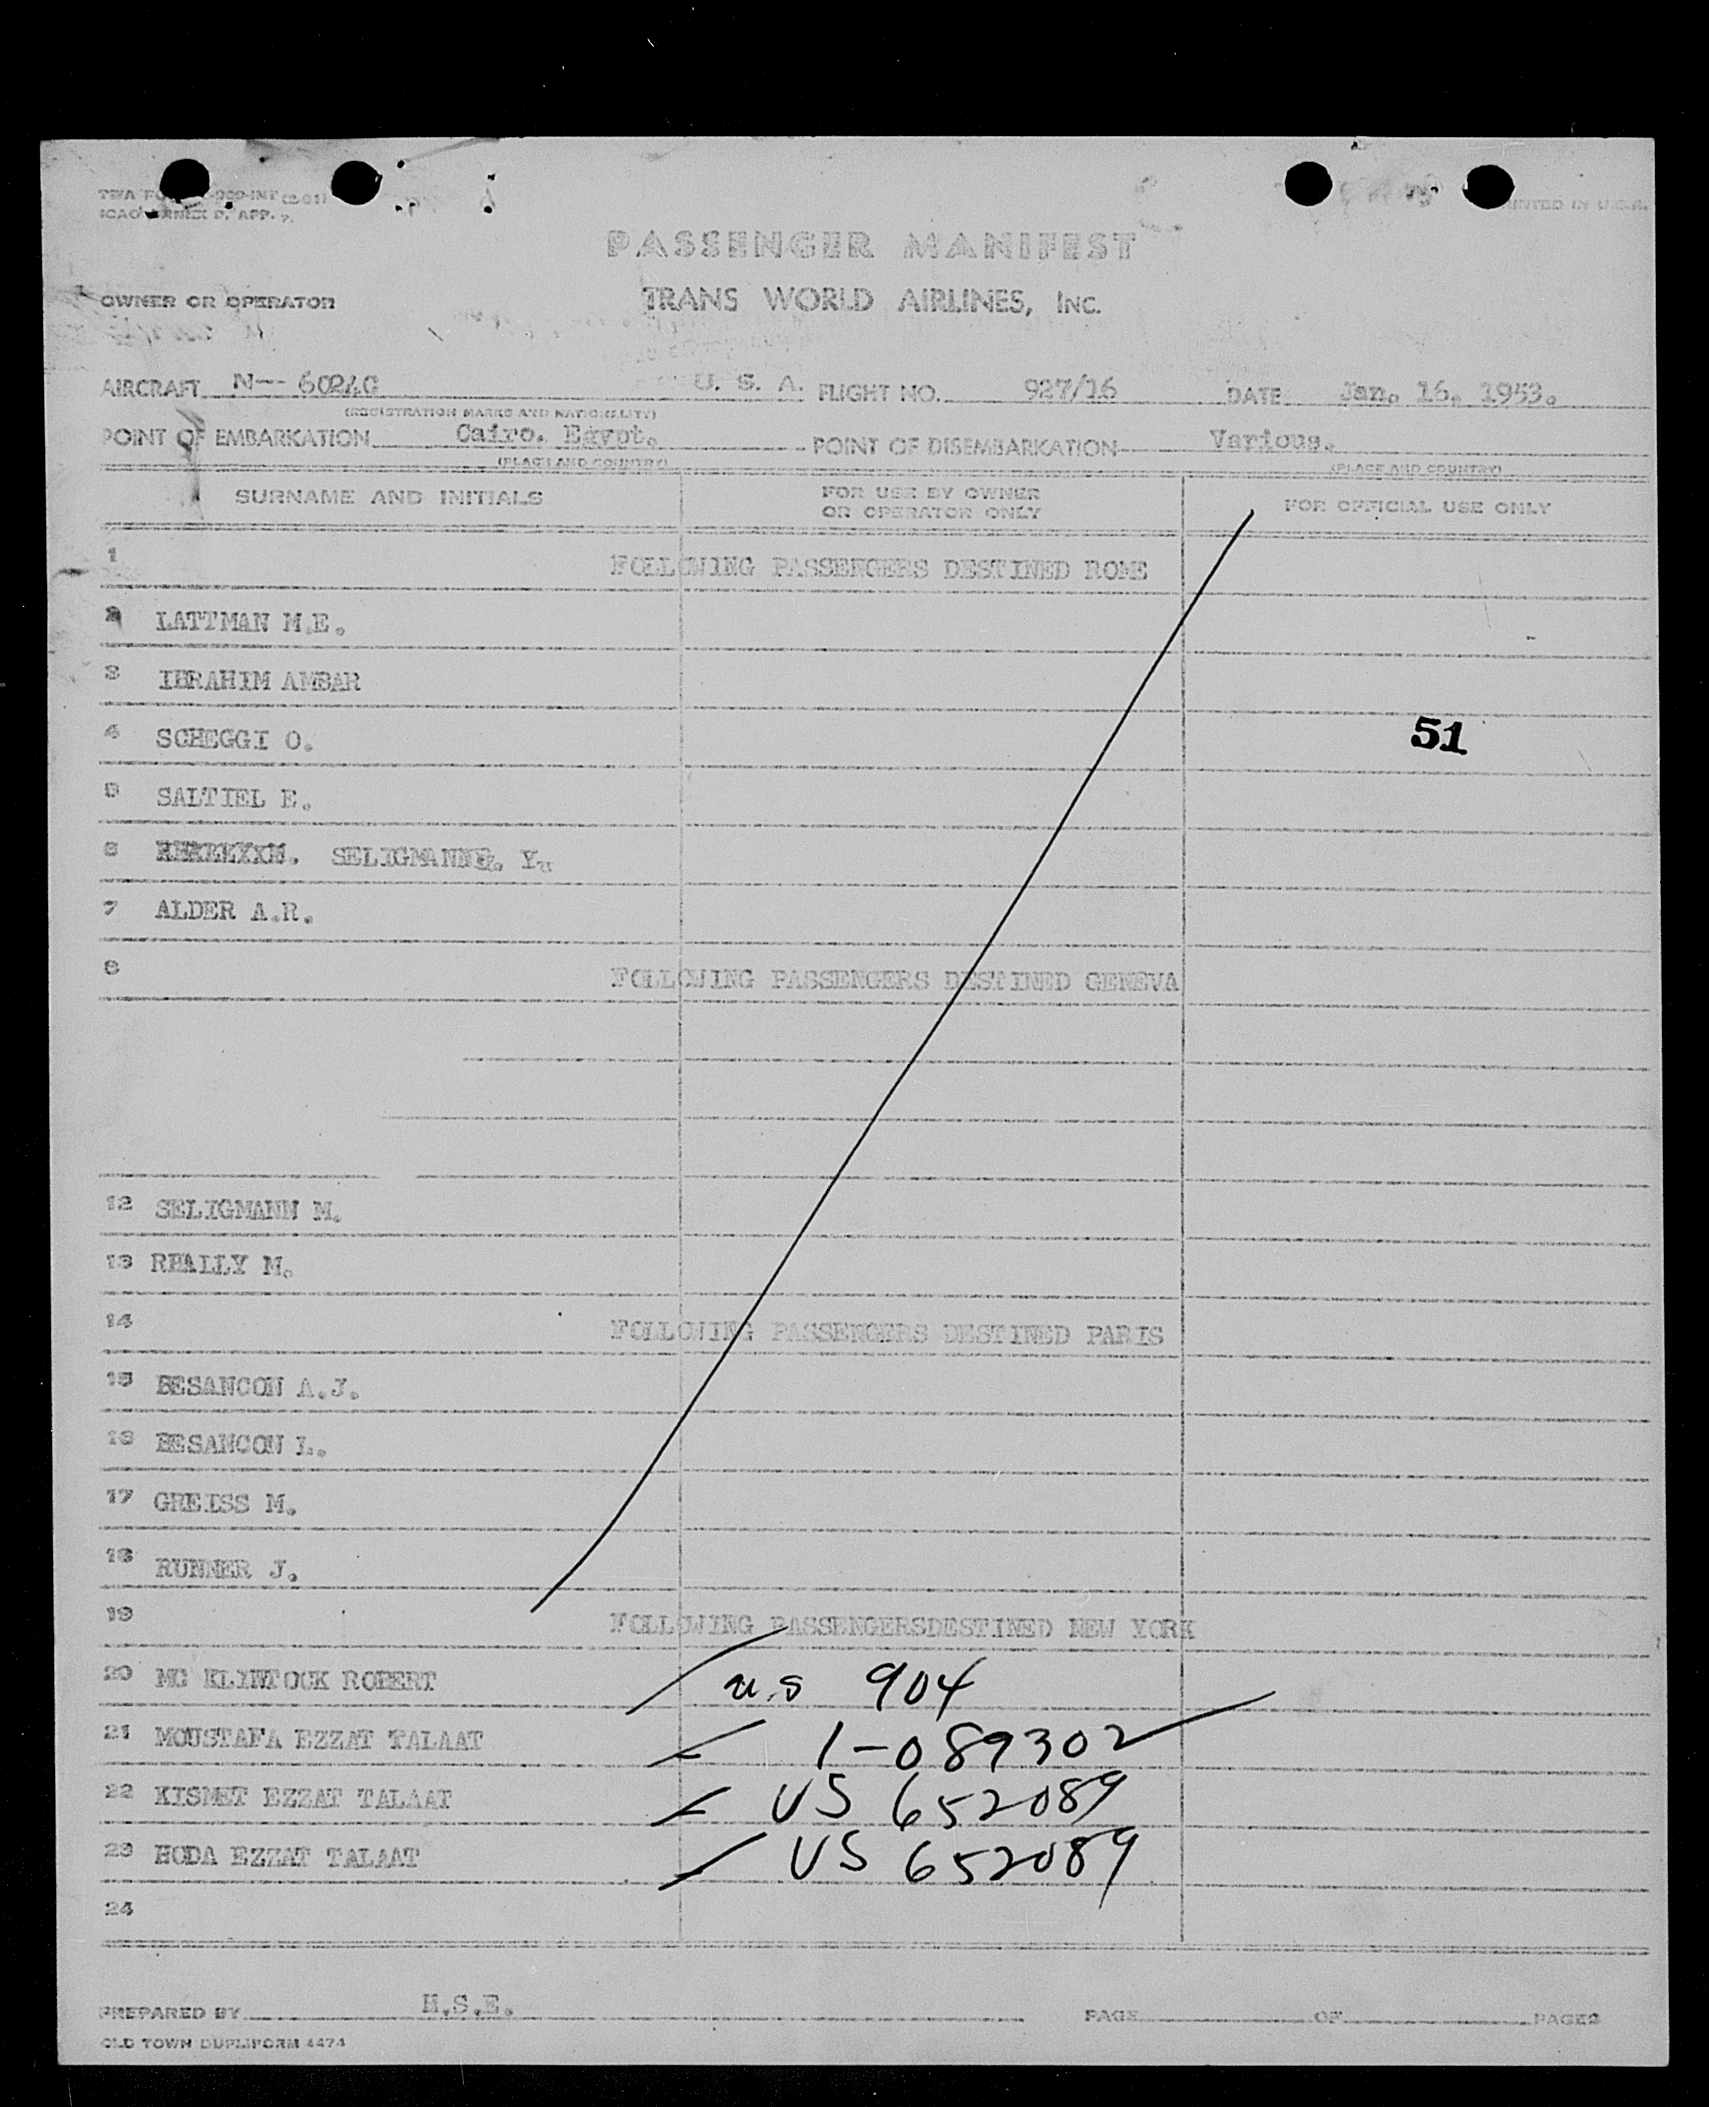 PRINTED IN U.S.A.
ICAO ANNEX 9, APP.
PASSENGER MANIFEST
OWNER OR OPERATOR TRANS WORLD AIRLINES, INC.
AIRCRAFT N-- 6024C U. S. A. FLIGHT NO. 927/16 DATE Jan. 16. 1953.
(REGISTRATION MARKS AND NATIONALITY)
POINT OF EMBARKATION Cairo. Egypt. POINT OF DISEMBARKATION Various.
(PLACE AND COUNTRY) (PLACE AND COUNTRY)
SURNAME AND INITIALS FOR USE BY OWNER OR OPERATOR ONLY FOR OFFICIAL USE ONLY
1 FOLLOWING PASSENGERS DESTINED ROME
2 LATTMAN M.E.
3 IBRAHIM AMBAR
4 SCHEGGI O. 51
5 SALTIEL E.
6 SELIGMANN Y.
7 ALDER A.R.
8 FOLLOWING PASSENGERS DESTINED GENEVA
12 SELIGMANN M.
13 REALLY M.
14 FOLLOWING PASSENGERS DESTINED PARIS
15 BESANCON A.J.
16 BESANCON L.
17 GREISS M.
18 RUNNER J.
19 FOLLOWING PASSENGERSDESTINED NEW YORK
20 MC KLINTOCK ROBERT u.s 904
21 MOUSTAFA EZZAT TALAAT 1-089302
22 KISMET EZZAT TALAAT US 652089
23 HODA EZZAT TALAAT US 652089
24
PREPARED BY H.S.E. PAGE OF PAGES
OLD TOWN DUPLIFORM 4474